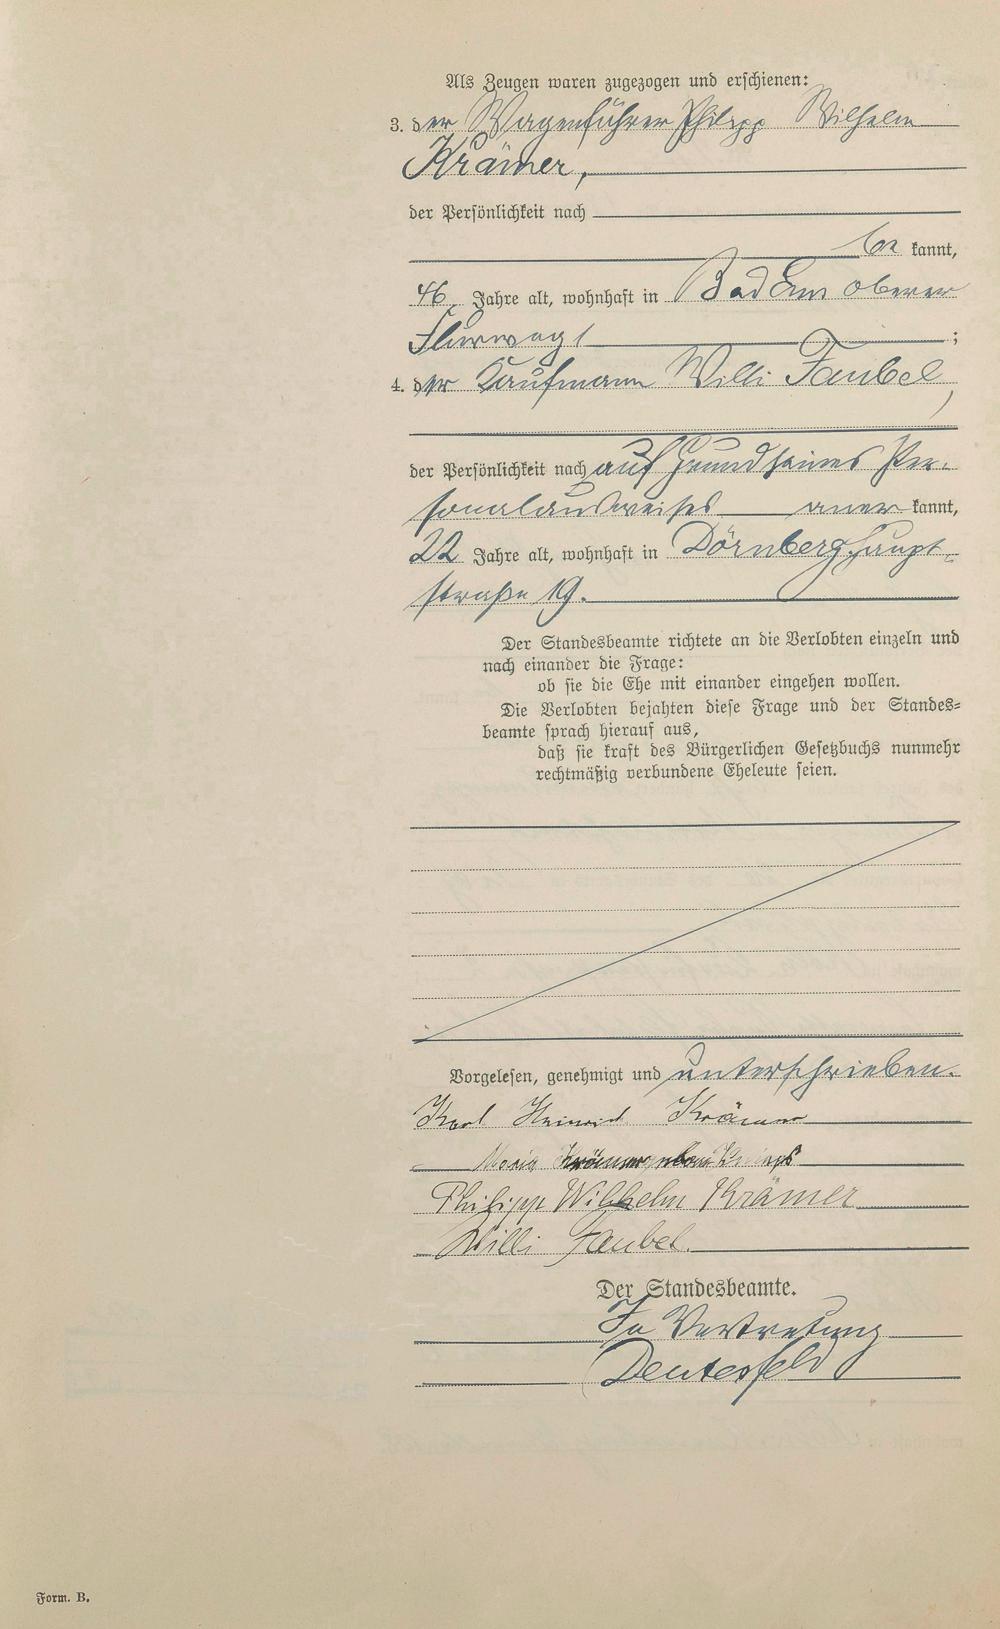 Als Zeugen waren zugezogen und erschienen:
3. der Wagenführer Philipp Wilhelm
Krämer,
der Persönlichkeit nach
be kannt,
46 Jahre alt, wohnhaft in Bad Ems Oberer
Flurweg 1 ;
4. der Kaufmann Willi Faubel,
der Persönlichkeit nach auf Grund seines Per-
sonalausweises aner kannt,
22 Jahre alt, wohnhaft in Dörnberg, Haupt-
straße 19.
Der Standesbeamte richtete an die Verlobten einzeln und
nach einander die Frage:
ob sie die Ehe mit einander eingehen wollen.
Die Verlobten bejahten diese Frage und der Standes-
beamte sprach hierauf aus,
daß sie kraft des Bürgerlichen Gesetzbuchs nunmehr
rechtmäßig verbundene Eheleute seien.
Vorgelesen, genehmigt und unterschrieben.
Karl Heinrich Krämer
Maria Krämer geborene
Philipp Wilhelm Krämer
Willi Faubel.
Der Standesbeamte.
In Vertretung
Form. B.